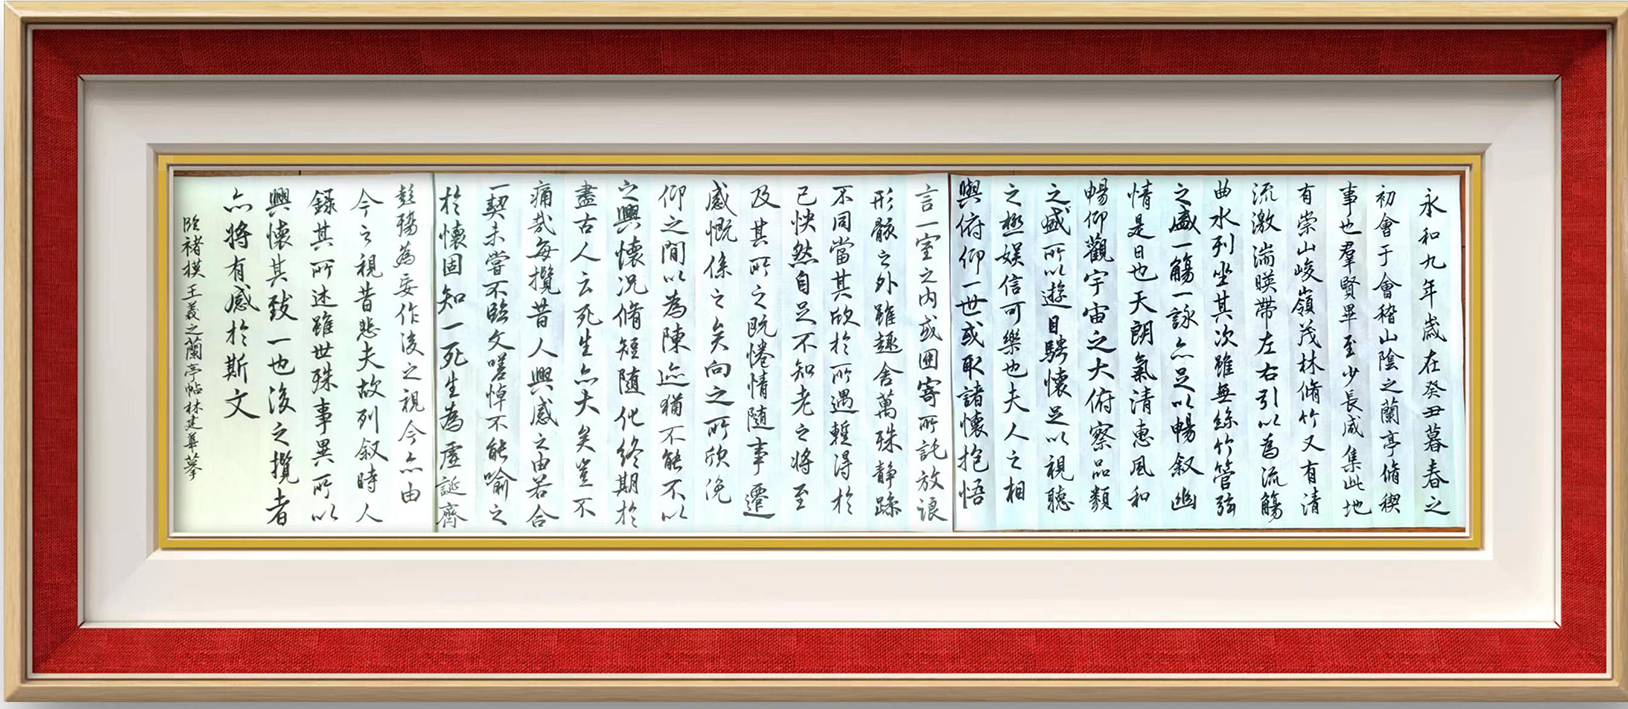 永和九年歲在癸丑暮春之
初會于會稽山陰之蘭亭脩稧
事也羣賢畢至少長咸集此地
有崇山峻嶺茂林脩竹又有清
流激湍暎帶左右引以為流觴
曲水列坐其次雖無絲竹管弦
之盛一觴一詠亦足以暢叙幽
情是日也天朗氣清惠風和
暢仰觀宇宙之大俯察品類
之盛所以遊目騁懷足以視聽
之極娱信可樂也夫人之相
與俯仰一世或取諸懷抱悟
言一室之内或因寄所託放浪
形骸之外雖趣舍萬殊静躁
不同當其欣於所遇蹔得於
己怏然自足不知老之將至
及其所之既惓情随事遷
感慨係之矣向之所欣俛
仰之間以為陳迹猶不能不以
之興懷况脩短随化終期於
盡古人云死生亦大矣豈不
痛哉每攬昔人興感之由若合
一契未嘗不臨文嗟悼不能喻之
於懷固知一死生為虚誕齊
彭殤為妄作後之視今亦由
今之視昔悲夫故列叙時人
錄其所述雖世殊事異所以
興懷其致一也後之攬者
亦將有感於斯文
臨褚摸王羲之蘭亭帖林建華摹